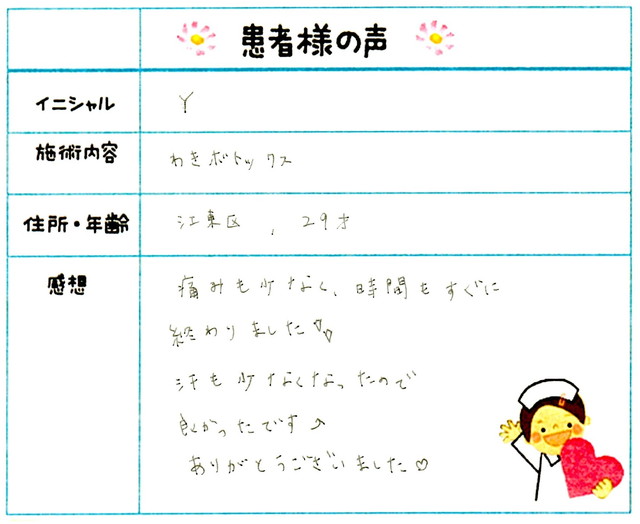 患者様の声
イニシャル Y
施術内容 わきボトックス
住所・年齢 江東区 , 29才
感想 痛みも少なく、時間もすぐに
終わりました♡♡
汗も少なくなったので
良かったです♪
ありがとうございました♡